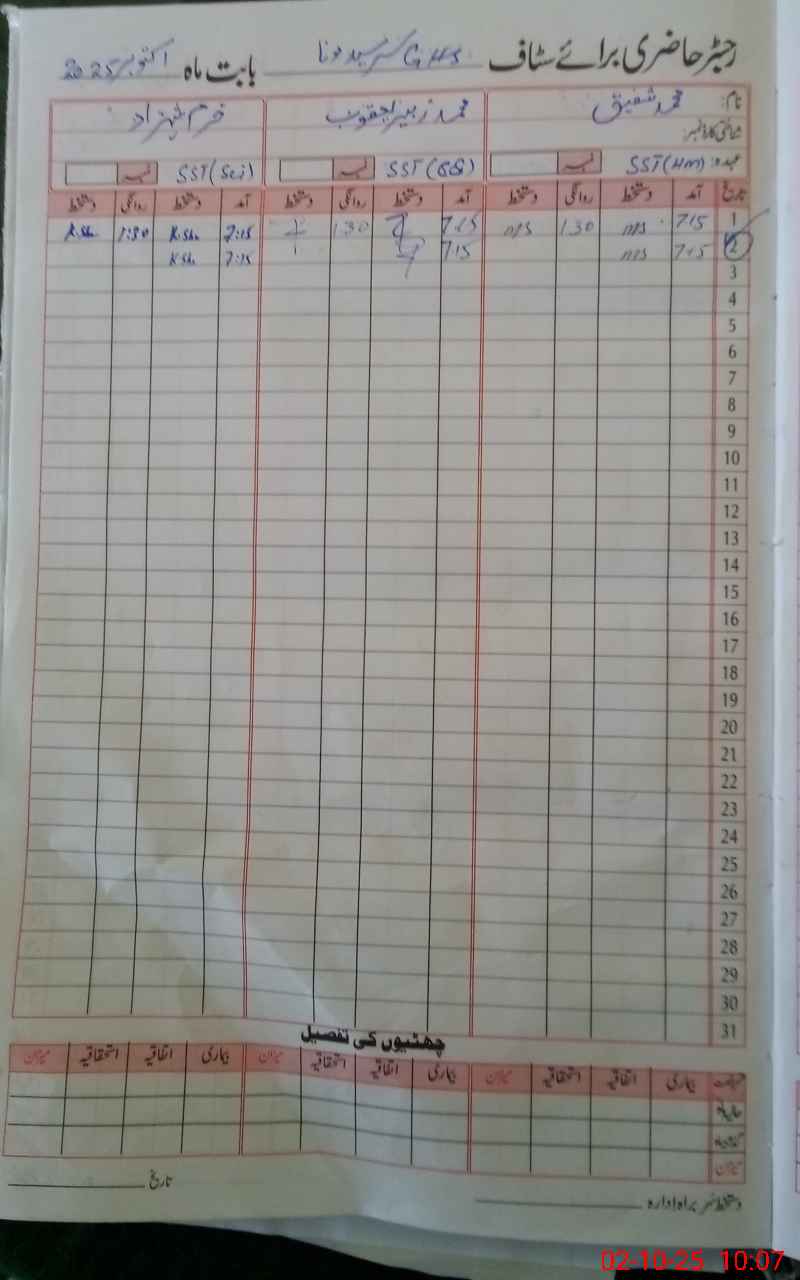 رجسٹر حاضری برائے سٹاف GHS بابت ماہ اکتوبر 2025
نام: محمد شفیق محمد زبیر یعقوب خرم شہزاد
شناختی کارڈ نمبر:
عہدہ: SST(HM) SST( SST(Sci)
تاریخ آمد دستخط روانگی دستخط آمد دستخط روانگی دستخط آمد دستخط روانگی دستخط
1 7:15 ms 1:30 ms 7:15 1:30 7:15 K.Sh. 1:30 K.Sh.
2 7:15 ms 7:15 7:15 K.Sh.
3
4
5
6
7
8
9
10
11
12
13
14
15
16
17
18
19
20
21
22
23
24
25
26
27
28
29
30
31
چھٹیوں کی تفصیل
بیماری اتفاقیہ استحقاقیہ میزان بیماری اتفاقیہ استحقاقیہ میزان بیماری اتفاقیہ استحقاقیہ میزان
میزان
دستخط سربراہ ادارہ تاریخ
02-10-25 10:07